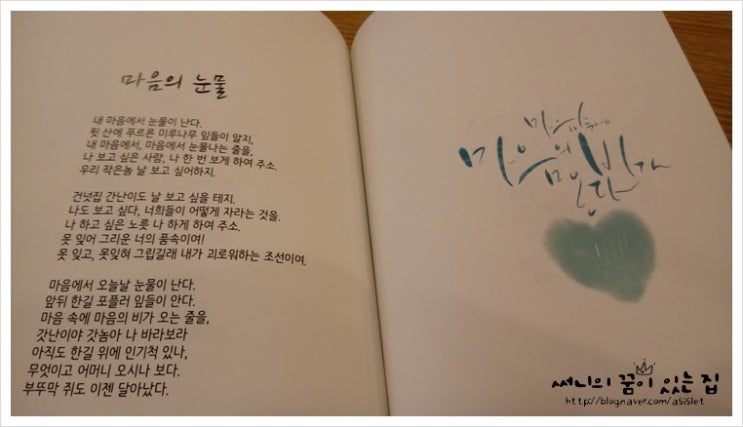 마음의 눈물
내 마음에서 눈물이 난다.
뒷 산에 푸르른 미루나무 잎들이 알지,
내 마음에서, 마음에서 눈물나는 줄을,
나 보고 싶은 사람, 나 한 번 보게 하여 주소,
우리 작은놈 날 보고 싶어하지,
건넛집 갓난이도 날 보고 싶을 테지,
나도 보고 싶다, 너희들이 어떻게 자라는 것을.
나 하고 싶은 노릇 나 하게 하여 주소.
못 잊어 그리운 너의 품속이여!
못 잊고, 못잊혀 그립길래 내가 괴로워하는 조선이여.
마음에서 오늘날 눈물이 난다.
앞뒤 한길 포플러 잎들이 안다.
마음 속에 마음의 비가 오는 줄을,
갓난이야 갓놈아 나 바라보라
아직도 한길 위에 인기척 있나,
무엇이고 어머니 오시나 보다.
부뚜막 쥐도 이젠 달아났다.
마음속에
마음의 비가
오는
써니의 꿈이 있는 집
http://blog.naver.com/asislet